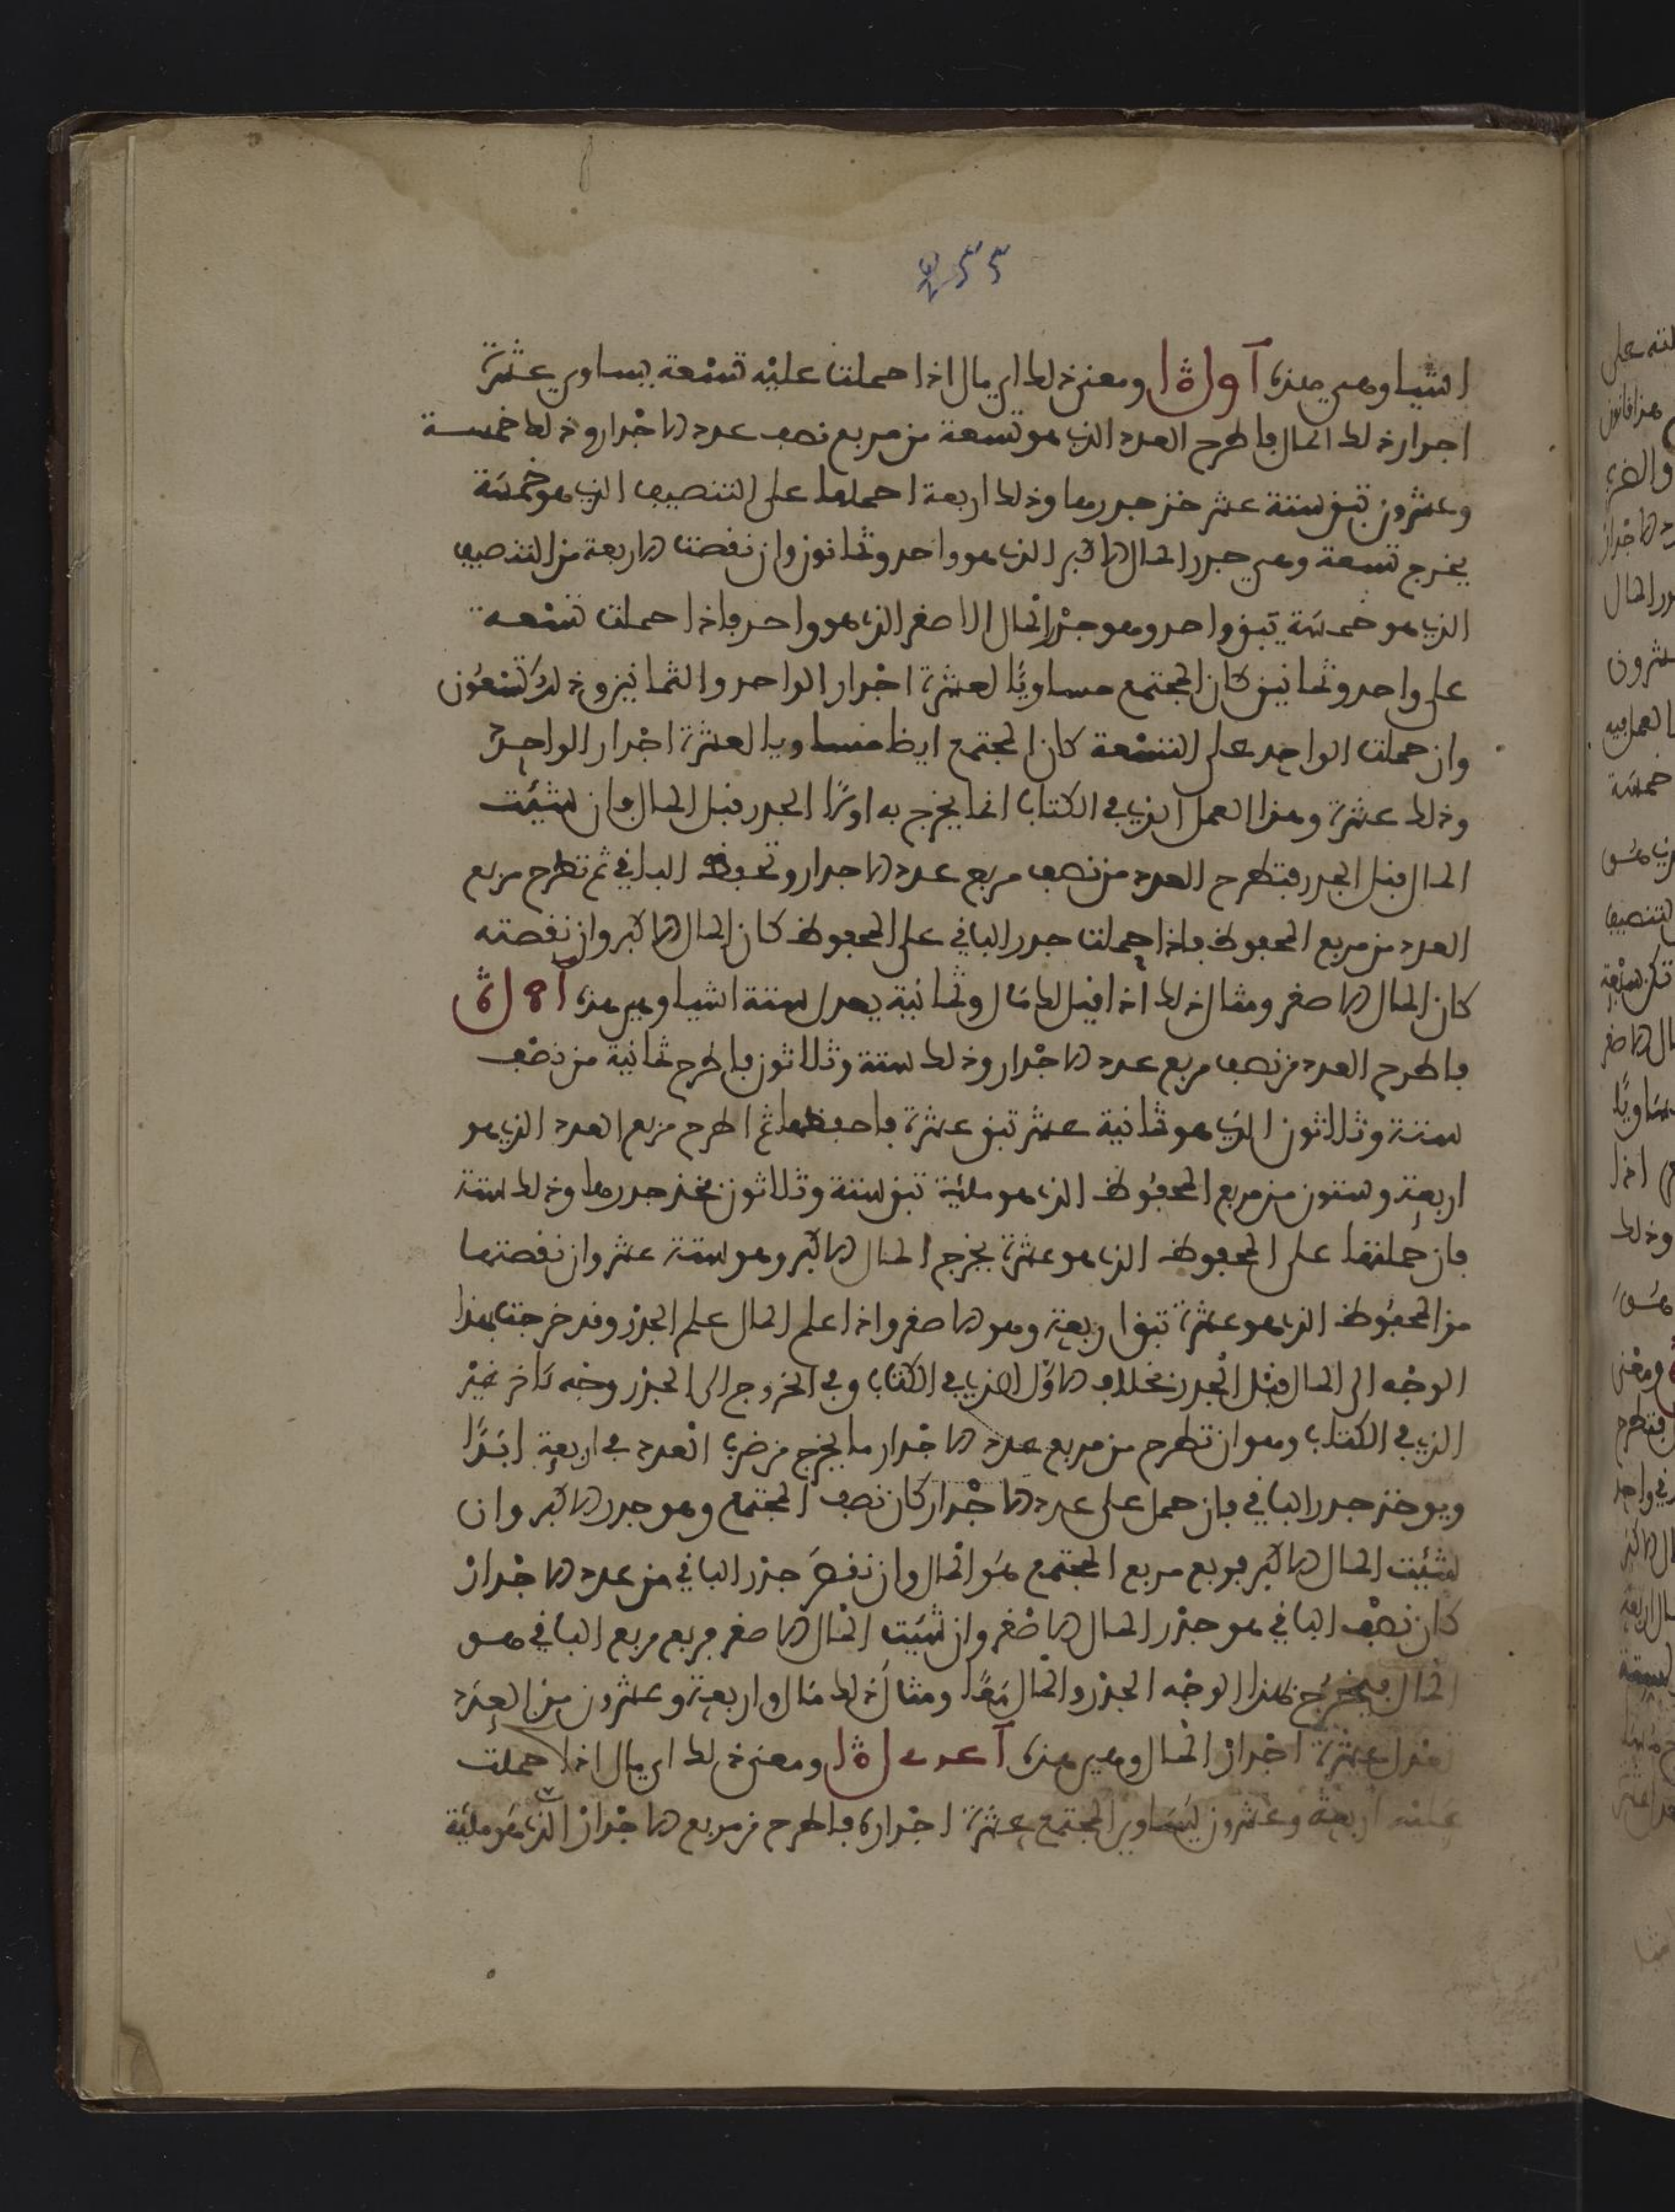 اشيا وهي هذه آ ٩ ل ة ا ومعنى ذلك اي مال اذا حملت عليه تسعة يساوي عشرة
اجذار ذلك المال فاطرح العدد الذي هو تسعة من مربع نصف عدد الاجذار وذلك خمسة
وعشرون تبق ستة عشر خذ جذرها وذلك اربعة احملها على التنصيف الذي هو خمسة
يخرج تسعة وهي جذر المال الاكبر الذي هو واحد وثمانون وان نقصت الاربعة من التنصيف
الذي هو خمسة تبق واحد وهو جذر المال الاصغر الذي هو واحد فاذا حملت تسعة
على واحد وثمانين كان المجتمع مساويًا لعشرة اجذار الواحد والثمانين وذلك تسعون
وان حملت الواحد على التسعة كان المجتمع ايظا مساويا لعشرة اجذار الواحد
وذلك عشرة وهذا العمل الذي في الكتاب انما يخرج به اولًا الجذر قبل المال وان شئت
المال قبل الجذر فتطرح العدد من نصف مربع عدد الاجذار وتحفظ الباقي ثم تطرح مربع
العدد من مربع المحفوظ فاذا حملت جذر الباقي على المحفوظ كان المال الاكبر وان نقصته
كان المال الاصغر ومثال ذلك اذا قيل لك مال وثمانية يعدل ستة اشيا وهي هذه آ ٨ ل ة
فاطرح العدد من نصف مربع عدد الاجذار وذلك ستة وثلاثون فاطرح ثمانية من نصف
ستة وثلاثون الذي هو ثمانية عشر تبق عشرة فاحفظها ثم اطرح مربع العدد الذي هو
اربعة وستون من مربع المحفوظ الذي هو مائة تبق ستة وثلاثون فخذ جذرها وذلك ستة
فان حملتها على المحفوظ الذي هو عشرة يخرج المال الاكبر وهو ستة عشر وان نقصتها
من المحفوظ الذي هو عشرة تبق اربعة وهو الاصغر واذا علم المال علم الجذر وقد خرجت بهذا
الوجه الى المال قبل الجذر بخلاف الاول الذي في الكتاب وفي الخروج الى الجذر وجه ءاخر غير
الذي في الكتاب وهو ان تطرح من مربع عدد الاجذار ما يخرج من ضرب العدد في اربعة ابدًا
ويوخذ جذر الباقي فان حمل على عدد الاجذار كان نصف المجتمع وهو جذر الاكبر وان
شئت المال الاكبر فربع مربع المجتمع هو المال وان نقص جذر الباقي من عدد الاجذار
كان نصف الباقي هو جذر المال الاصغر وان شئت المال الاصغر فربع مربع الباقي هو
المال فيخرج بهذا الوجه الجذر والمال معًا ومثال ذلك مال واربعة وعشرون من العدد
تعدل عشرة اجذار المال وهي هذه ومعنى ذلك اي مال اذا حملت
عليه اربعة وعشرون يساوي المجتمع عشرة اجذاره فاطرح من مربع الاجذار الذي هو مائة